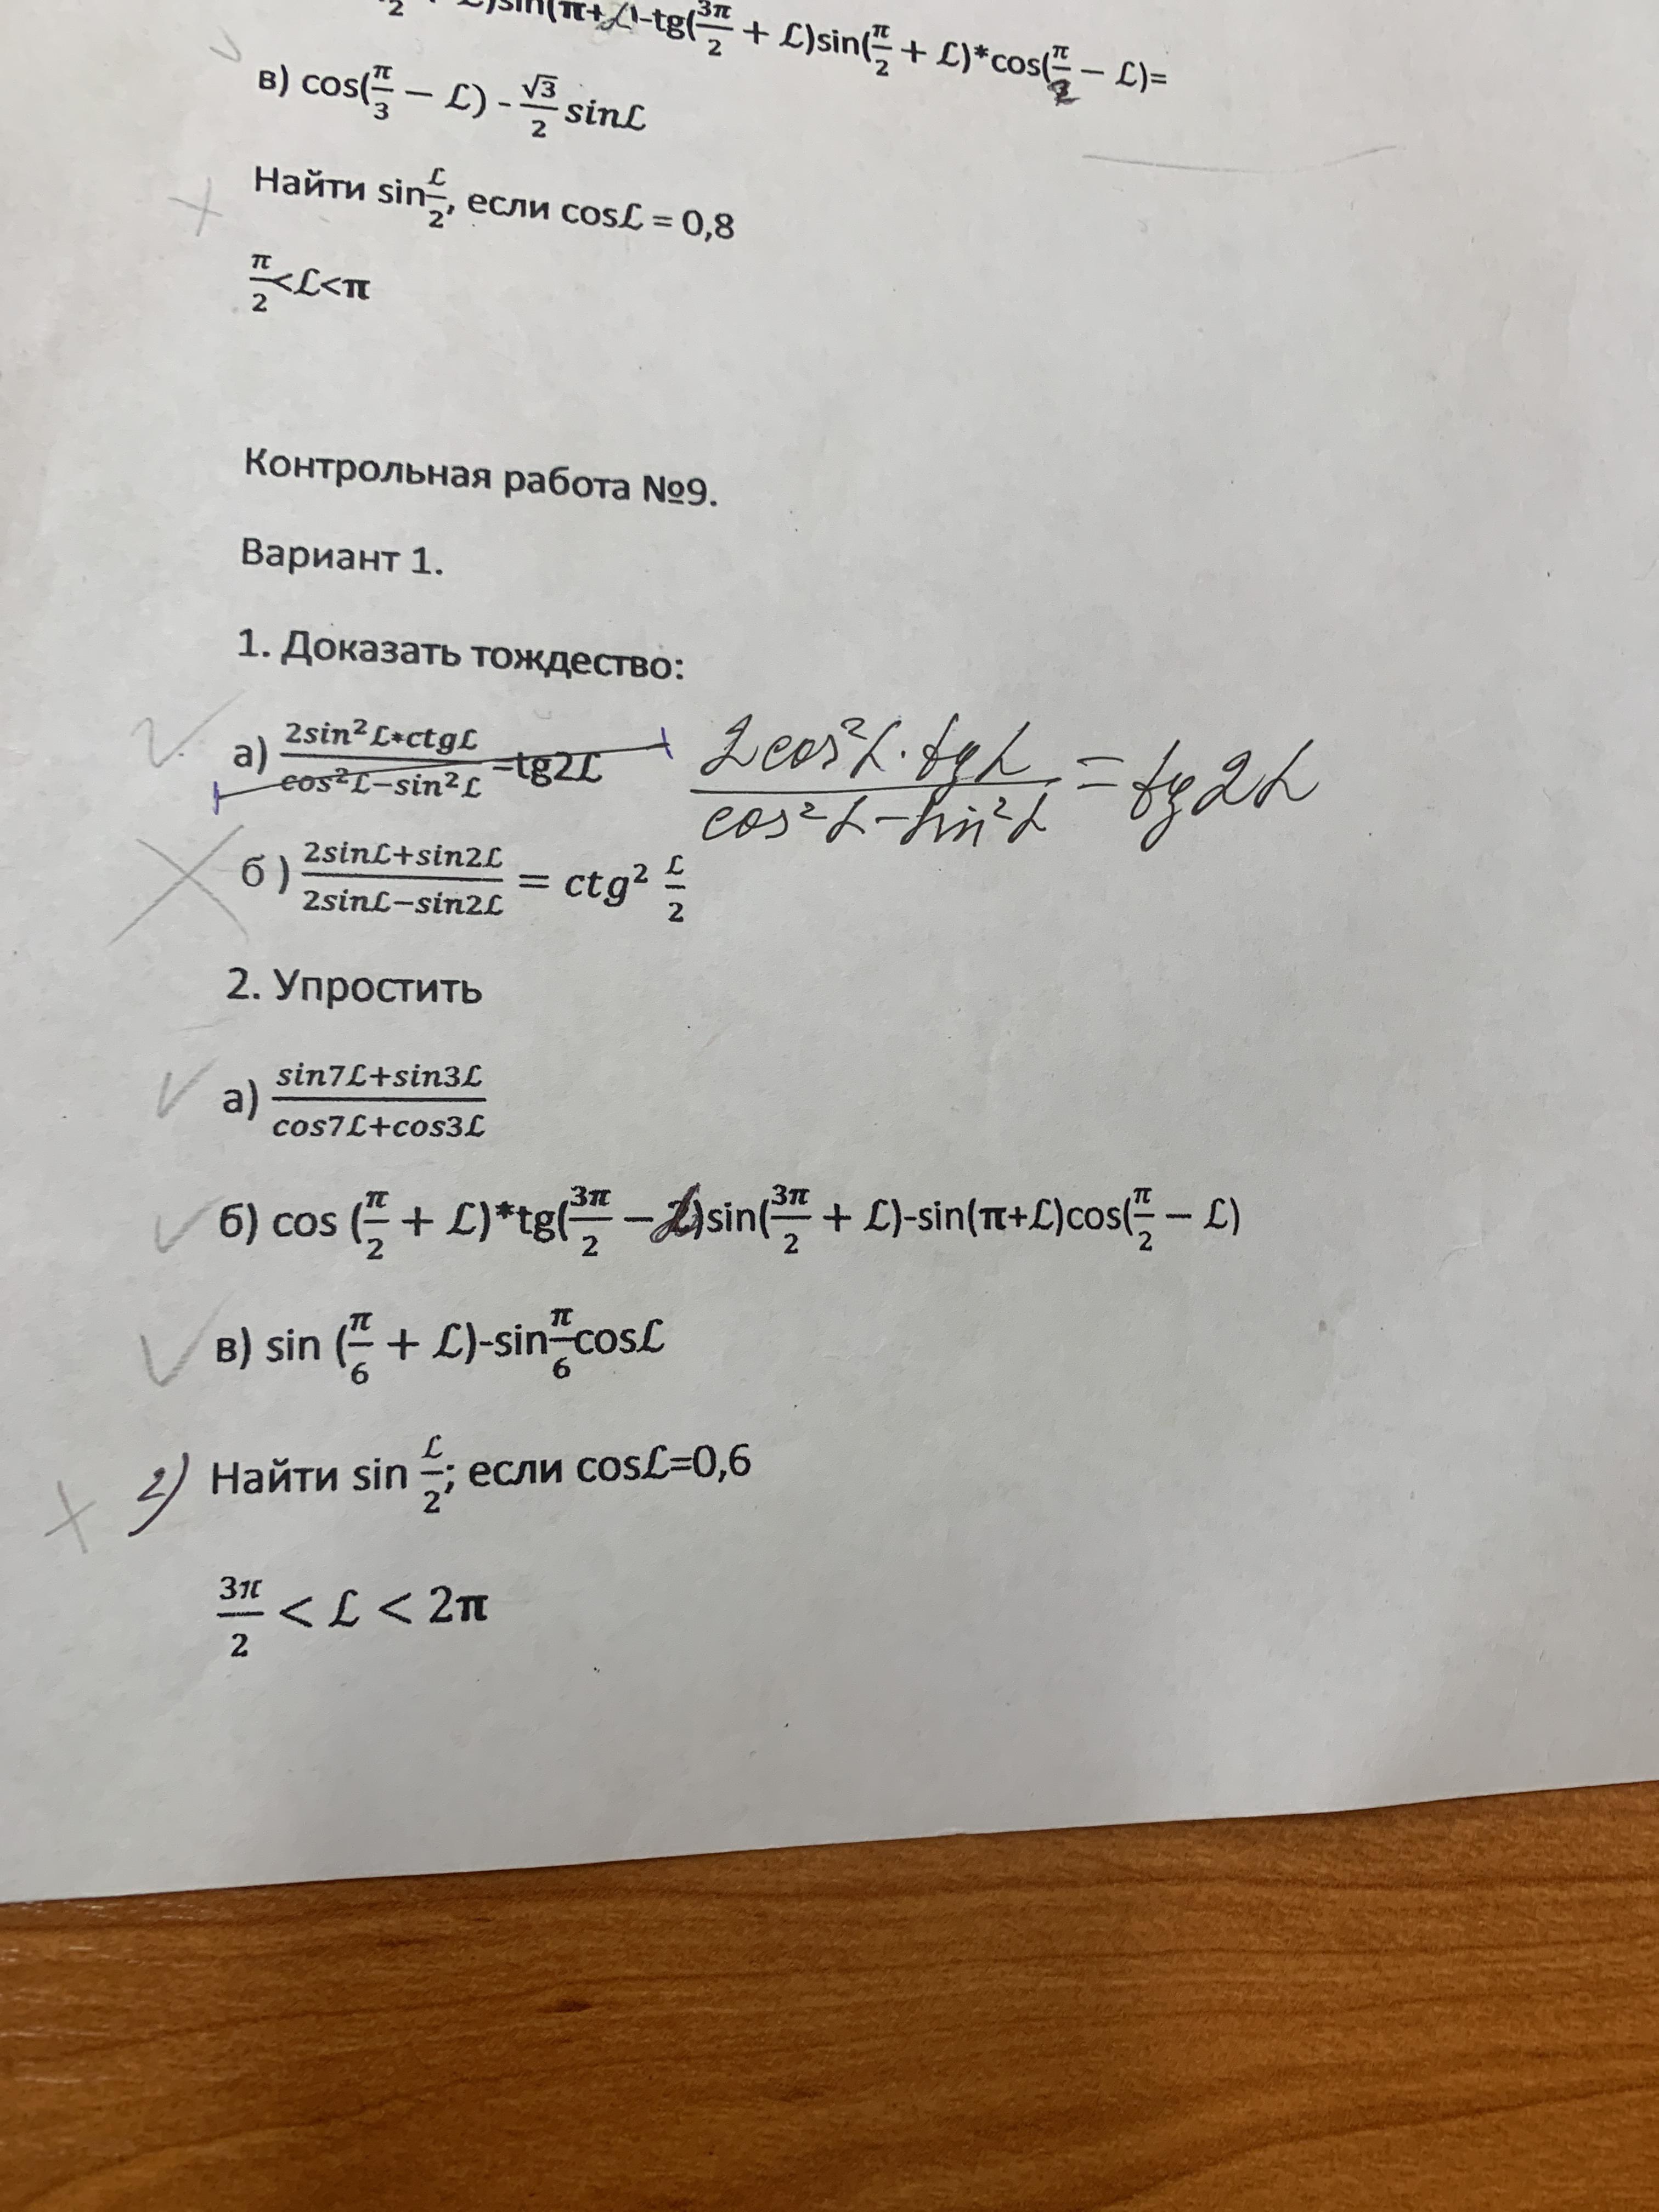 sin(π+ℒ)-tg(3π/2 + ℒ)sin(π/2 + ℒ)*cos(π/2 − ℒ)=
в) cos(π/3 − ℒ) - √3/2 sinℒ
Найти sin ℒ/2, если cosℒ = 0,8
π/2<ℒ<π
Контрольная работа №9.
Вариант 1.
1. Доказать тождество:
а) (2sin²ℒ*ctgℒ)/(cos²ℒ−sin²ℒ)=tg2ℒ (2cos²ℒ·tgℒ)/(cos²ℒ−sin²ℒ) = tg2ℒ
б) (2sinℒ+sin2ℒ)/(2sinℒ−sin2ℒ) = ctg² ℒ/2
2. Упростить
а) (sin7ℒ+sin3ℒ)/(cos7ℒ+cos3ℒ)
б) cos (π/2 + ℒ)*tg(3π/2 − ℒ)sin(3π/2 + ℒ)-sin(π+ℒ)cos(π/2 − ℒ)
в) sin (π/6 + ℒ)-sin π/6 cosℒ
г) Найти sin ℒ/2; если cosℒ=0,6
3π/2 < ℒ < 2π